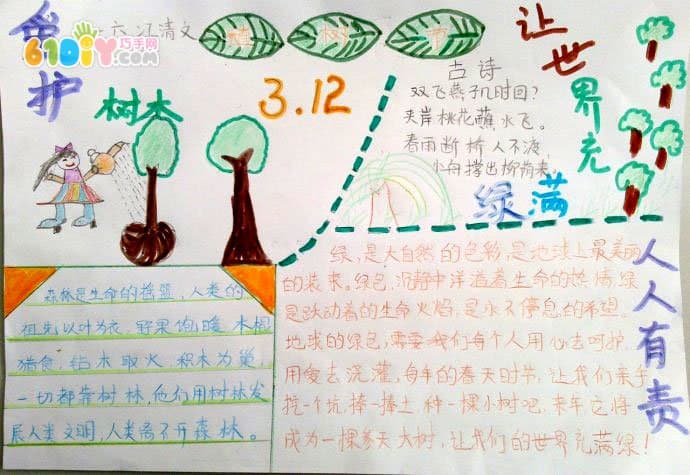 爱护
树木
六
汪清文
61DIY巧手网
植 树 节
3.12
让世界充
绿满
人人有责
古诗
双飞燕子几时回?
夹岸桃花蘸水飞。
春雨断桥人不渡,
小舟撑出柳荫来。
森林是生命的摇篮,人类的
祖先以叶为衣,野果饱暖,木棍
猎食,钻木取火,积木为巢
一切都靠树林,他们用树林发
展人类文明,人类离不开森林。
绿,是大自然的色彩,是地球上最美丽
的装束。绿色,沉静中洋溢着生命的热情,绿
是跃动着的生命火焰,是永不停息的希望。
地球的绿色,需要我们每个人用心去呵护,
用爱去浇灌,每年的春天时节,让我们亲手
挖一个坑,捧一捧土,种一棵小树吧,来年它将
成为一棵参天大树,让我们的世界充满绿!